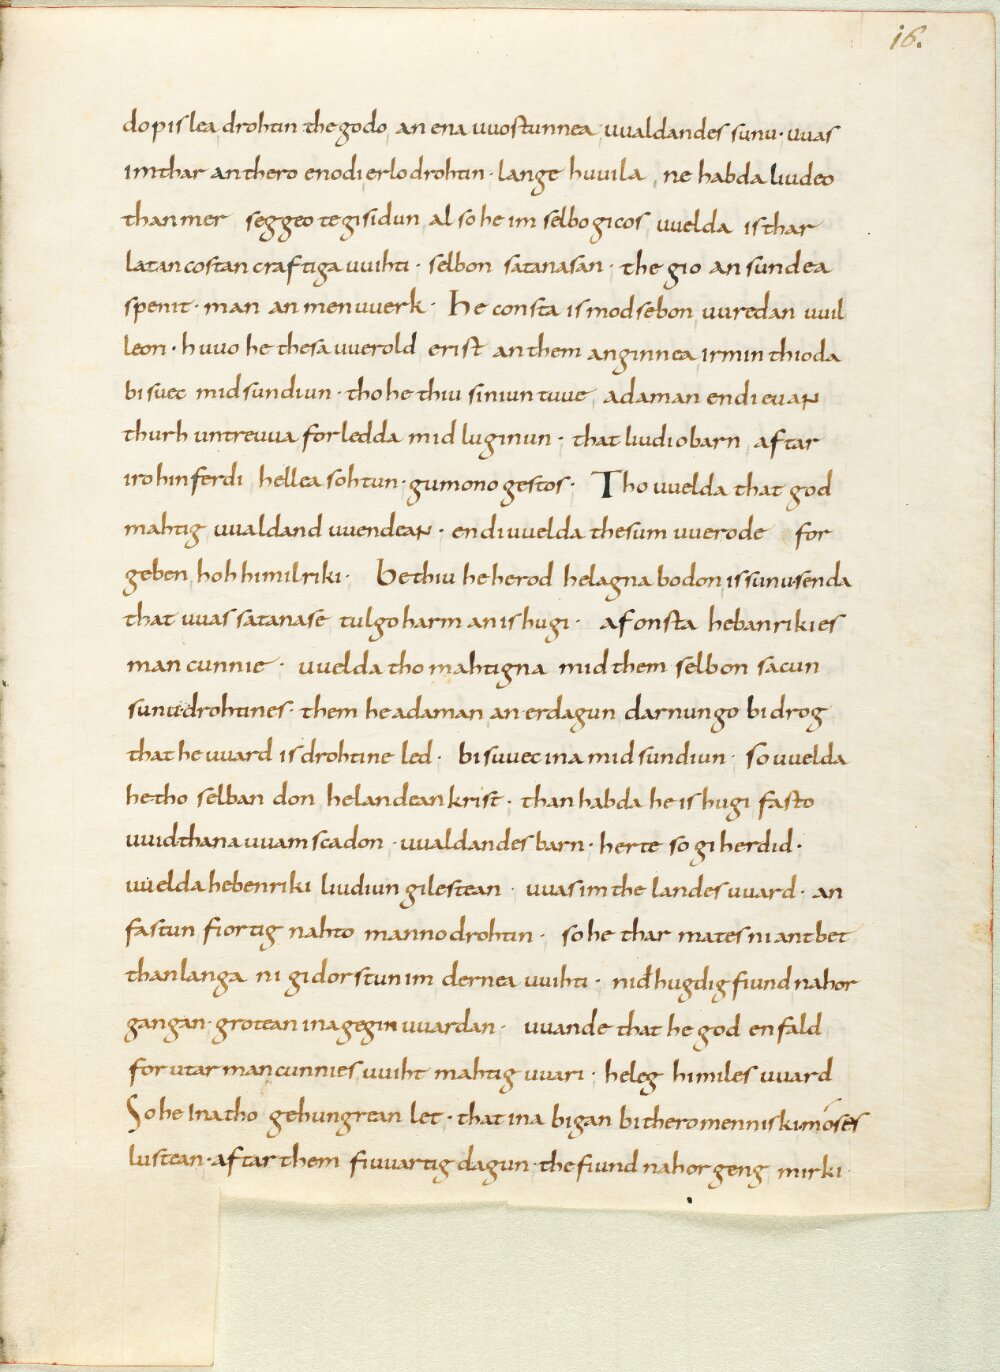 16.
dopislea drohtin the godo an ena vvuostunnea vvaldandes sunu · vvas
im thar an thero enodi erlo drohtin · lange huuila ne habda liudeo
than mer seggeo te gisidun al so he im selbo gicos vvelda is thar
latan costan craftiga vvihti · selbon satanasan · the gio an sundea
spenit · man an menvverk · He consta is modsebon vvredan vvil
leon · huuo he thesa vverold erist an them anginnea irmin thioda
bisuec mid sundiun · tho he thiu siniun tuue adaman endi evan
thurh untrevva forledda mid luginun · that liudio barn aftar
iro hinferdi hellea sohtun · gumono gestos · Tho vvelda that god
mahtig vvaldand vvendean · endi vvelda thesum vverode for
geben hoh himilriki · Bethiu he herod helagna bodon is sunu senda
that vvas satanase tulgo harm an is hugi · afonsta hebanrikies
mancunnie · vvelda tho mahtigna mid them selbon sacun
sunu drohtines · them he adaman an erdagun darnungo bidrog
that he vvard is drohtine led · bisvvec ina mid sundiun · so vvelda
he tho selban don helandean krist · than habda he is hugi fasto
vvid thana vvamscadon · vvaldandes barn · herte so giherdid ·
vvelda hebenriki liudiun gilestean · vvas im the landes vvard · an
fastun fiortig nahto manno drohtin · so he thar mates ni antbet
than langa ni gidorstun im dernea vvihti · nidhugdig fiund nahor
gangan · grotean ina geginvvardan · vvande that he god enfald
forutar mancunnies vviht mahtig vvari · heleg himiles vvard
So he Ina tho gehungrean let · that ina bigan bi thero menniski moses
lustean · aftar them fiuuartig dagun · the fiund nahor geng mirki